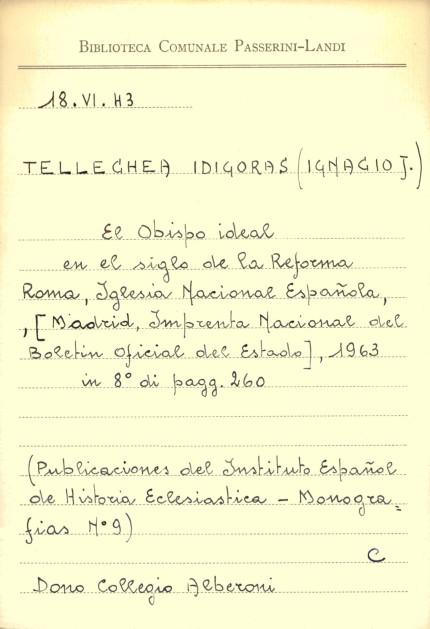 BIBLIOTECA COMUNALE PASSERINI-LANDI
18.VI.43
TELLECHEA IDIGORAS (IGNACIO J.)
El Obispo ideal
en el siglo de la Reforma
Roma, Iglesia Nacional Española,
, [Madrid, Imprenta Nacional del
Boletin Oficial del Estado], 1963
in 8° di pagg. 260
(Publicaciones del Instituto Español
de Historia Eclesiastica - Monogra=
fias N° 9)
C
Dono Collegio Alberoni